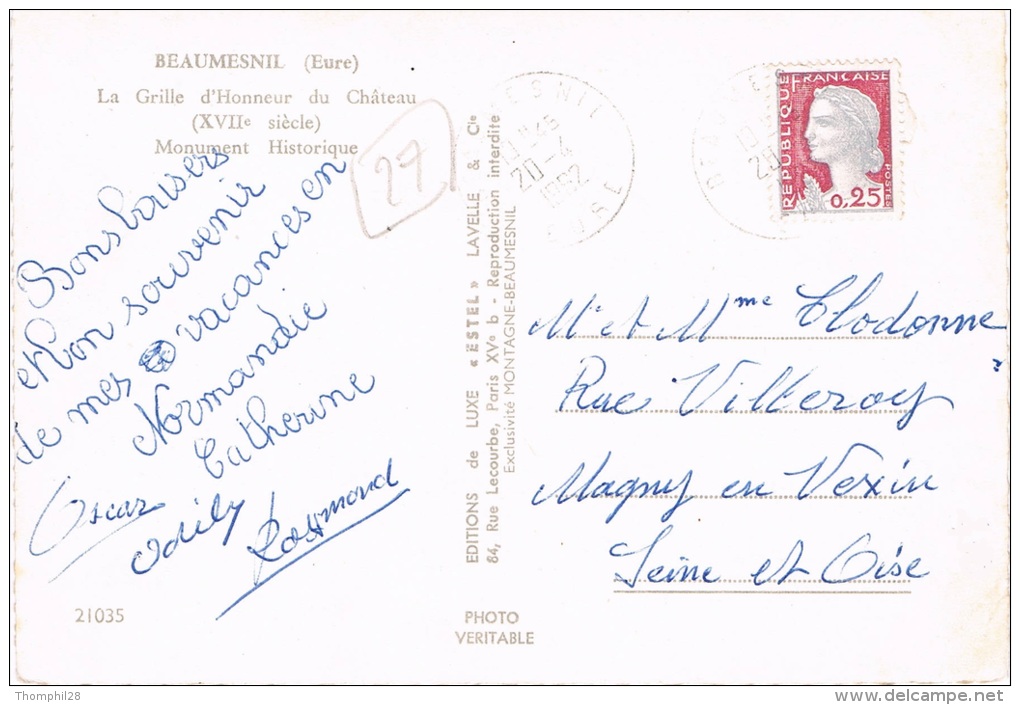 BEAUMESNIL (Eure)
La Grille d'Honneur du Château
(XVIIe siècle)
Monument Historique
27
Bons baisers
et bon souvenir
de mes vacances en
Normandie
Catherine
Oscar
Odily
Raymond
21035
EDITIONS de LUXE « ESTEL » LAVELLE & Cie
84, Rue Lecourbe, Paris XVe b - Reproduction interdite
Exclusivité MONTAGNE-BEAUMESNIL
PHOTO
VERITABLE
11-45
20-4
1962
REPUBLIQUE FRANÇAISE
POSTES
0,25
Mr et Mme Clodonne
Rue Villeroy
Magny en Vexin
Seine et Oise
Thomphil28
http://www.delcampe.net